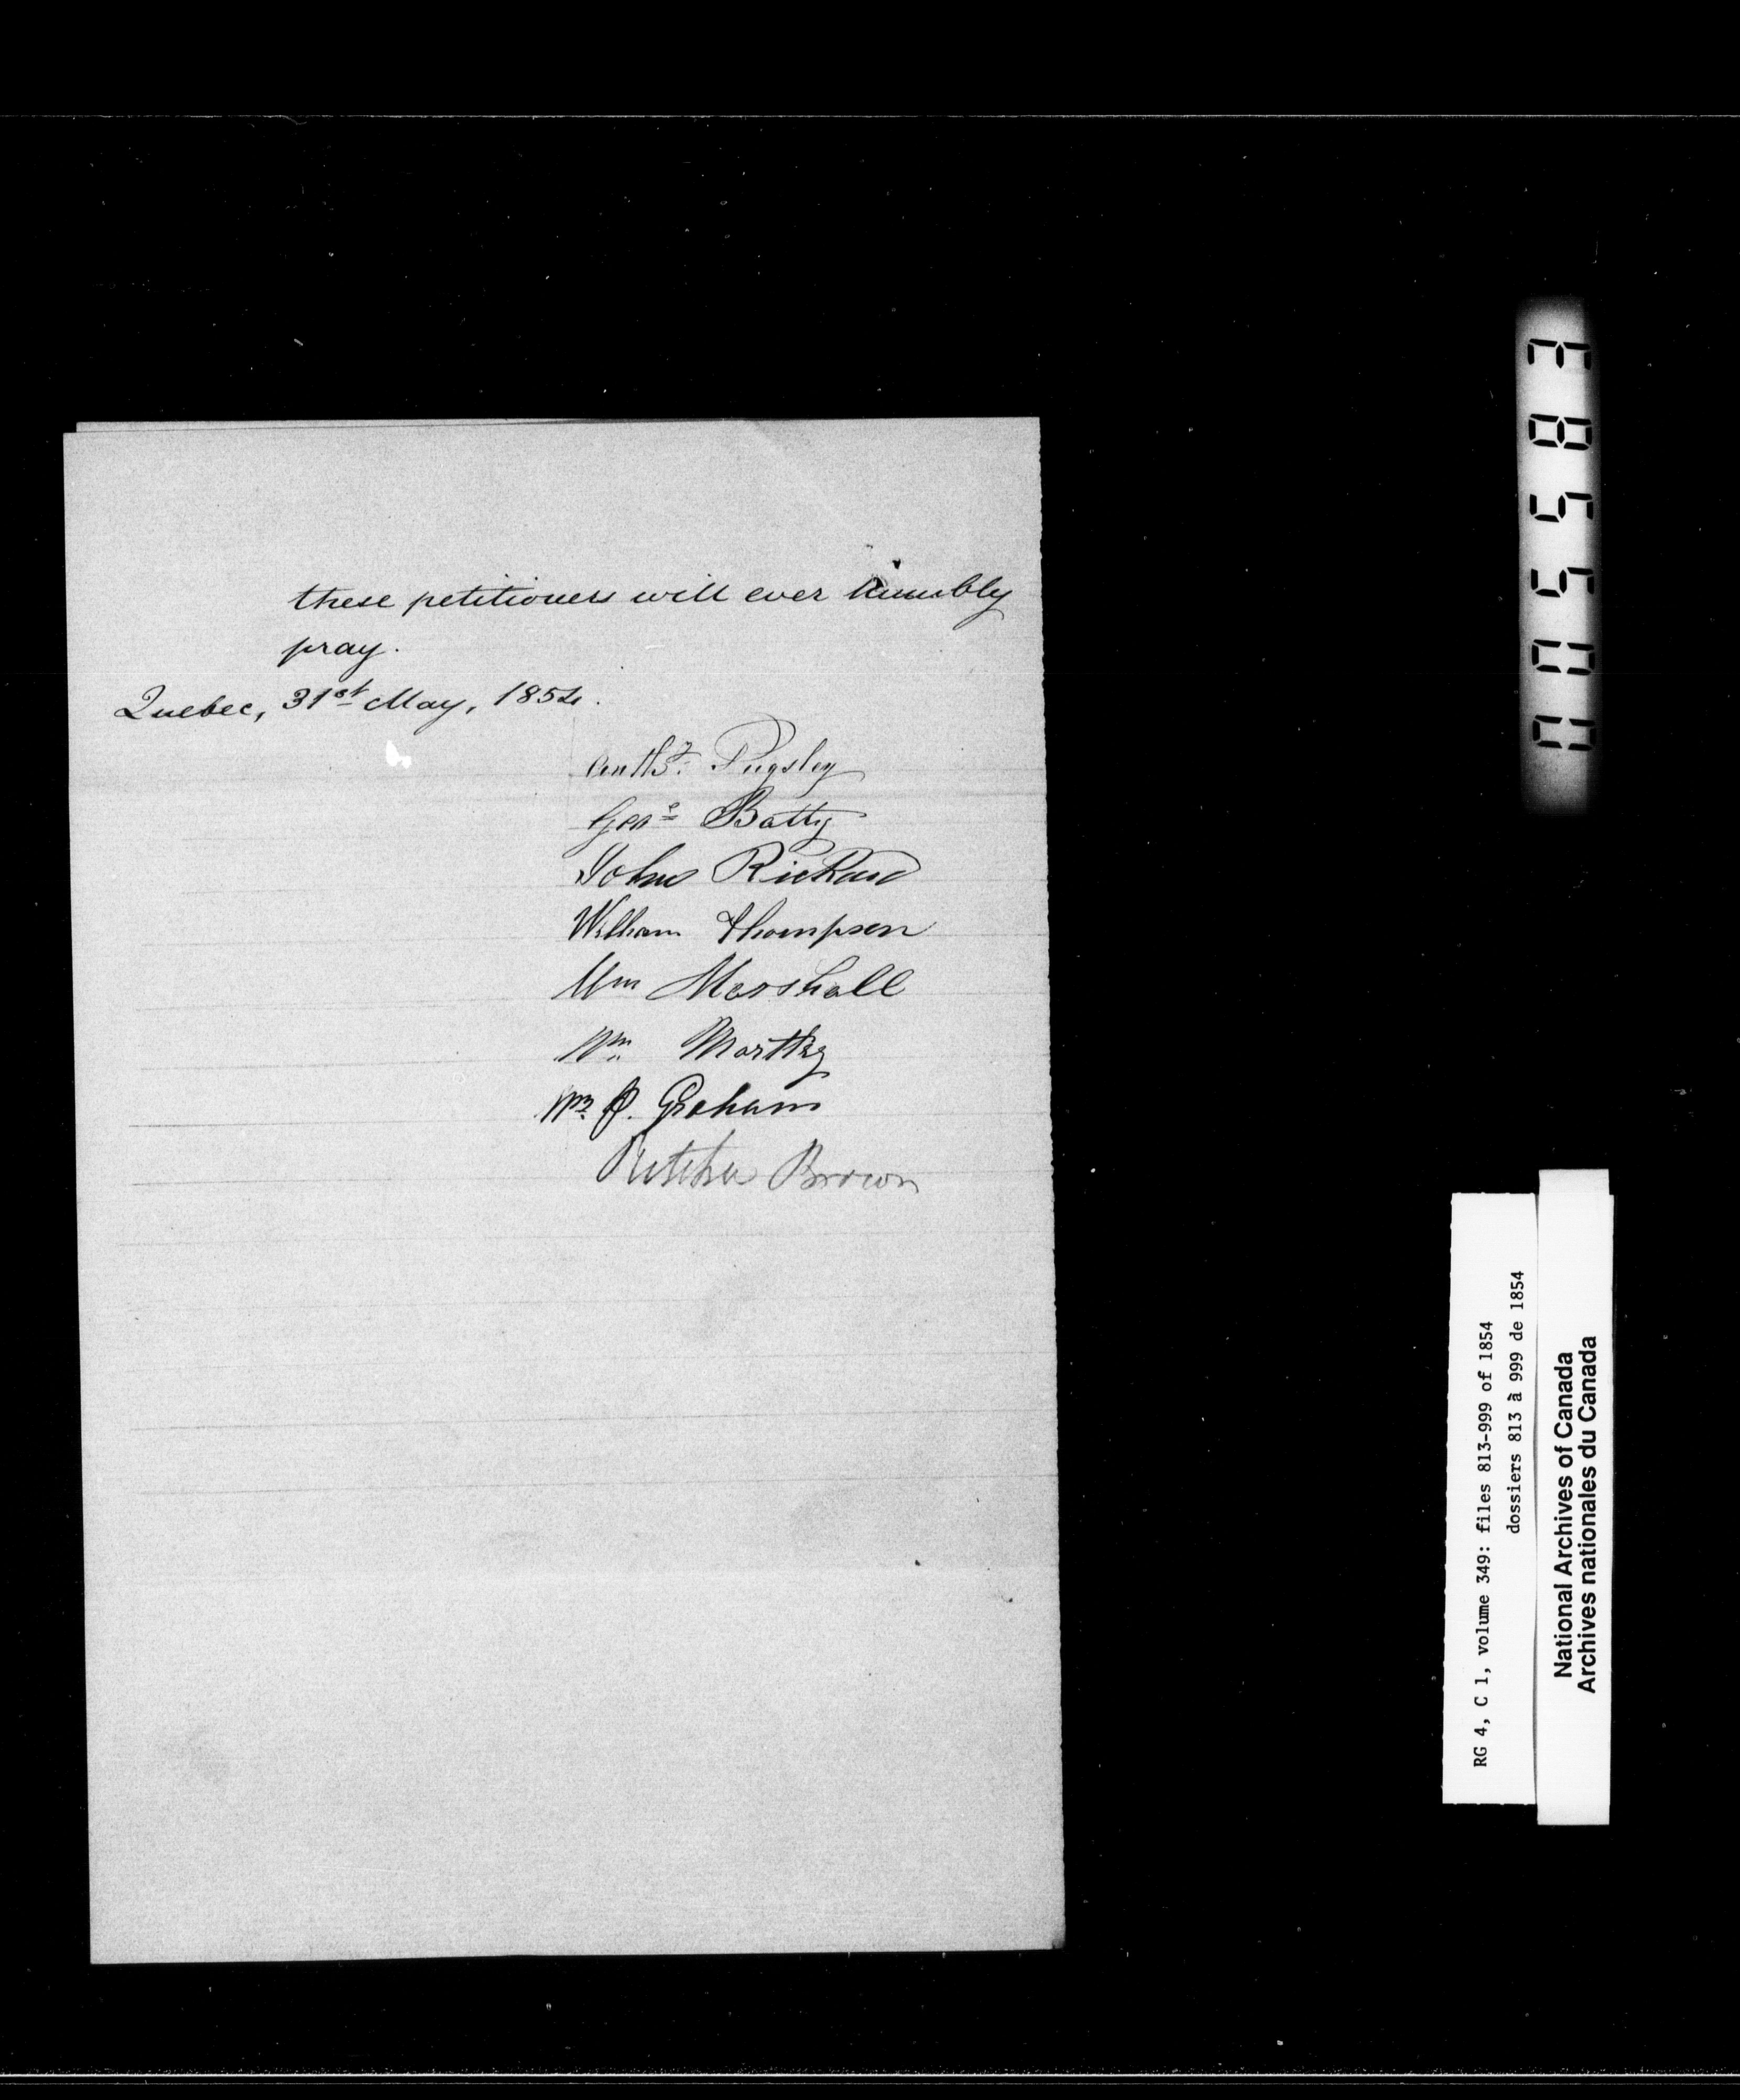 these petitioners will ever humbly
pray.
Quebec, 31st May, 1854.
Anthy. Pugsley
Geoe Batty
John Rickard
William Thompson
Wm Marshall
Wm
Wm P. Graham
Brown
005583
RG 4, C 1, volume 349: files 813-999 of 1854
dossiers 813 à 999 de 1854
National Archives of Canada
Archives nationales du Canada